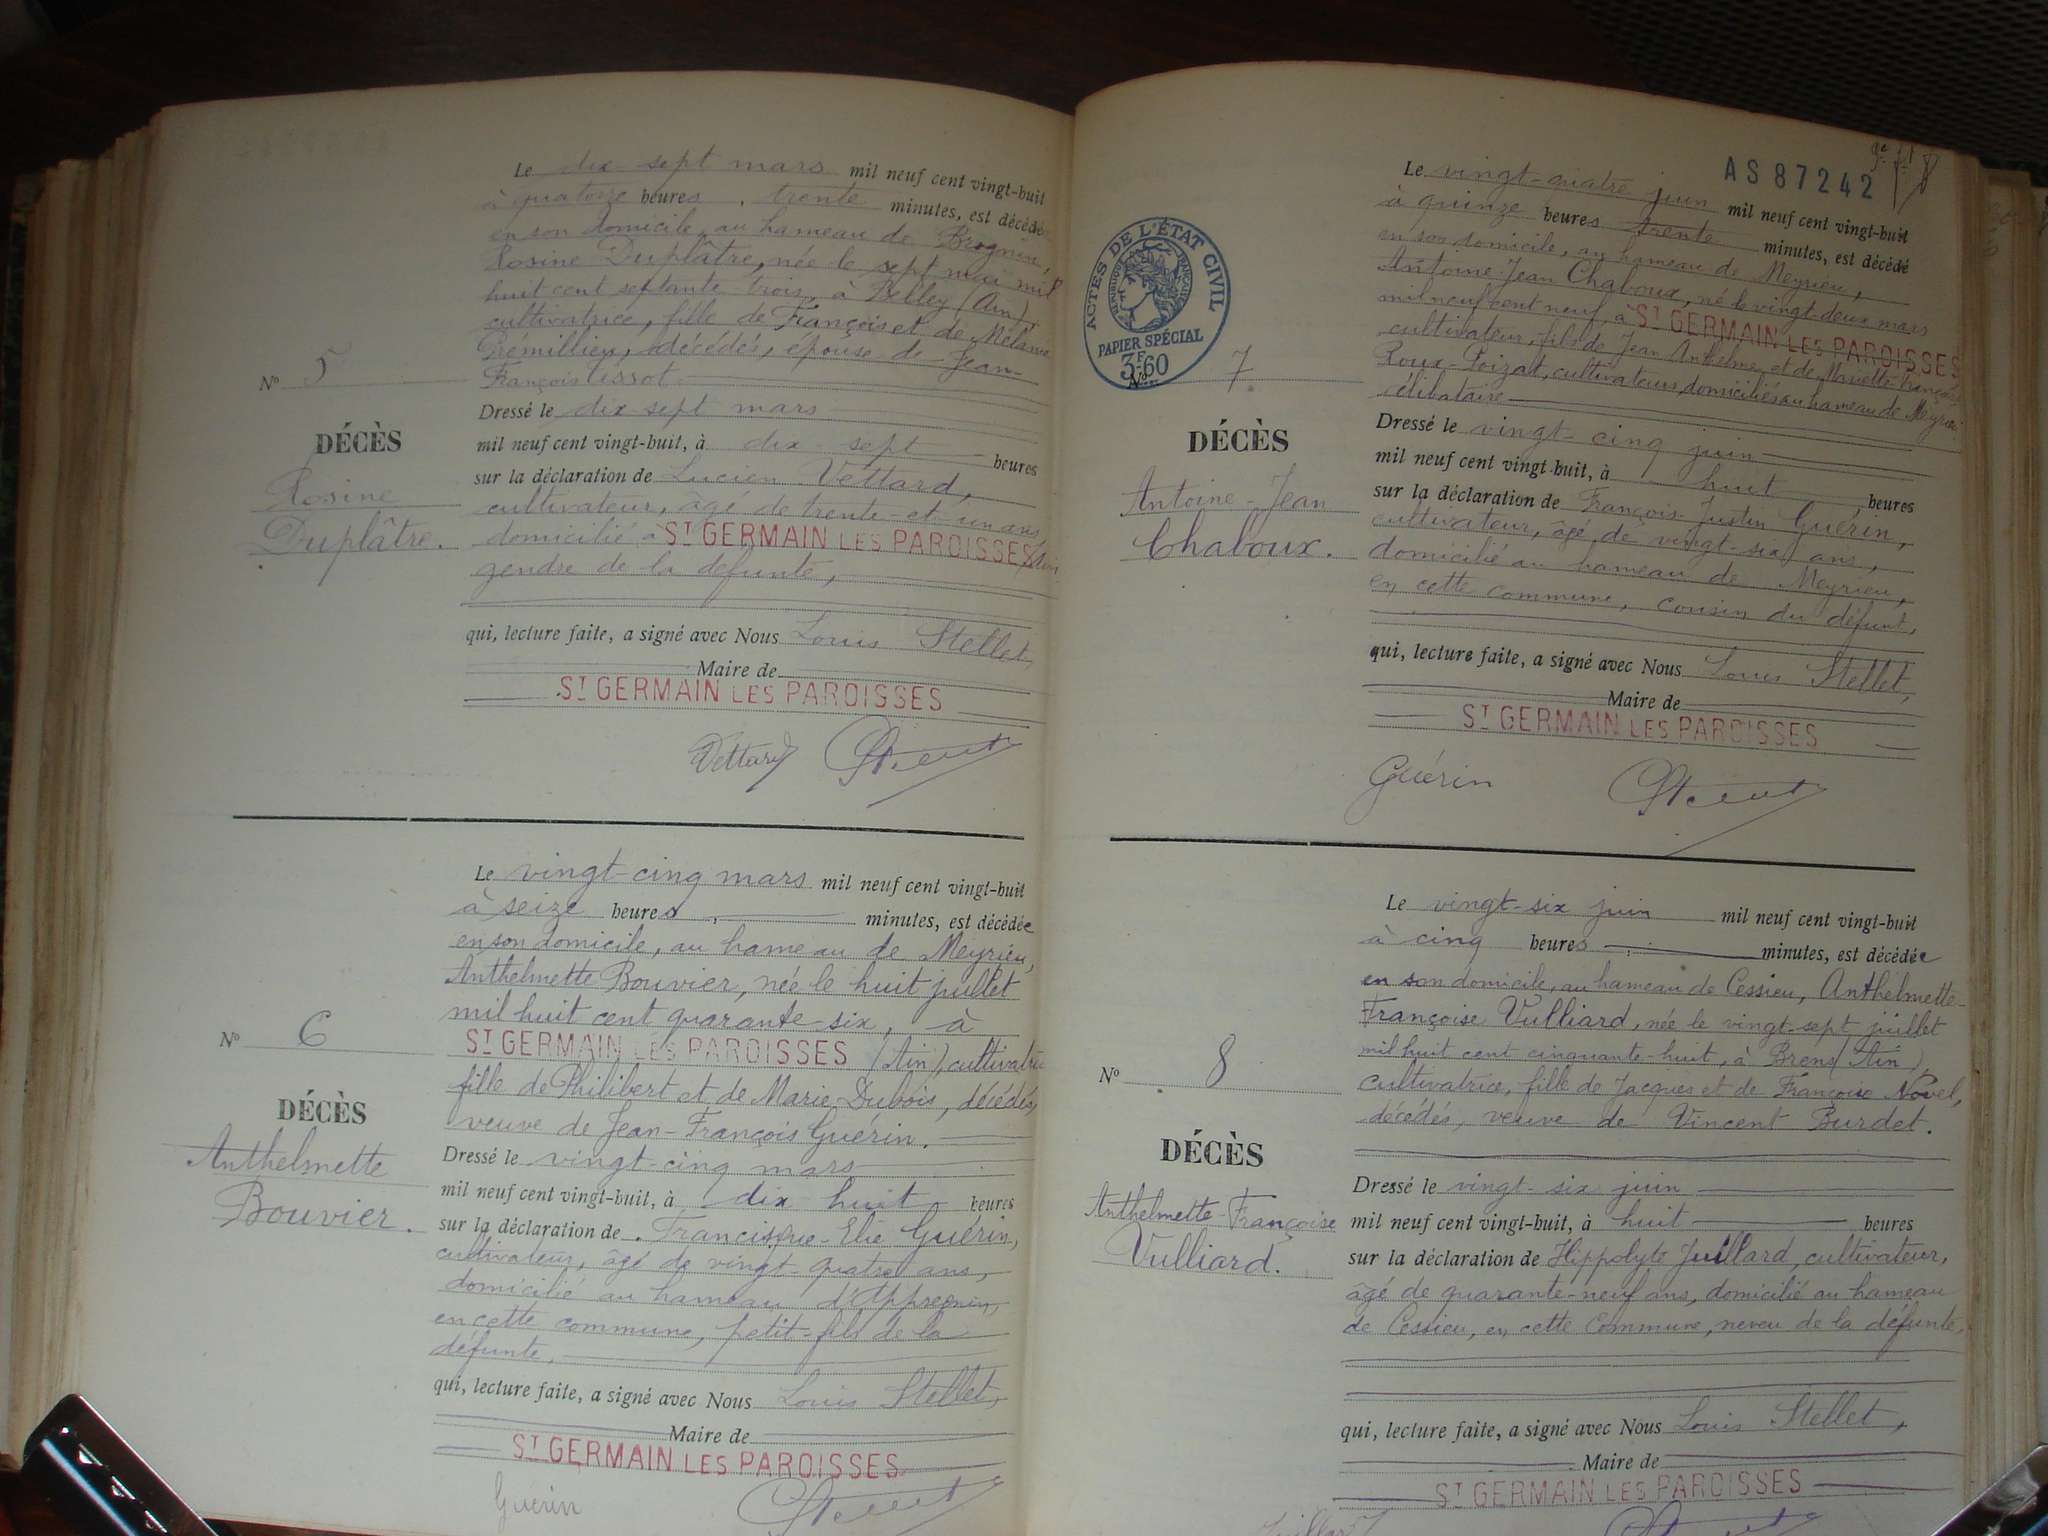 Le dix-sept mars mil neuf cent vingt-huit
à quatorze heures, trente minutes, est décédée
en son domicile, au hameau de Brognin,
Rosine Duplâtre, née le sept mai mil
huit cent septante-trois, à Belley (Ain),
cultivatrice, fille de François et de Mélanie
Prémillieu, décédés, épouse de Jean-
François Tissot.
Nº 5
Dressé le dix sept mars
DÉCÈS
mil neuf cent vingt-huit, à dix sept heures
Rosine
sur la déclaration de Lucien Vettard,
cultivateur, âgé de trente-et-un ans,
Duplâtre.
domicilié à ST GERMAIN LES PAROISSES (Ain)
gendre de la défunte,
qui, lecture faite, a signé avec Nous Louis Stellet,
Maire de
ST GERMAIN LES PAROISSES
Vettard
Le vingt-cinq mars mil neuf cent vingt-huit
à seize heures, minutes, est décédée
en son domicile, au hameau de Meyrieu,
Anthelmette Bouvier, née le huit juillet
mil huit cent quarante-six, à
Nº 6
ST GERMAIN LES PAROISSES (Ain), cultivatrice
fille de Philibert et de Marie Dubois, décédés,
DÉCÈS
veuve de Jean-François Guérin.
Anthelmette
Dressé le vingt-cinq mars
Bouvier.
mil neuf cent vingt-huit, à dix huit heures
sur la déclaration de Francisque-Elie Guérin,
cultivateur, âgé de vingt-quatre ans,
domicilié au hameau d'Appregnin,
en cette commune, petit-fils de la
défunte,
qui, lecture faite, a signé avec Nous Louis Stellet,
Maire de
ST GERMAIN LES PAROISSES
Guérin
AS 87242
ACTES DE L'ÉTAT CIVIL
RÉPUBLIQUE FRANÇAISE
PAPIER SPÉCIAL
3F60
Le vingt-quatre juin mil neuf cent vingt-huit
à quinze heures trente minutes, est décédé
en son domicile, au hameau de Meyrieu,
Antoine-Jean Chaboux, né le vingt-deux mars
mil neuf cent neuf, à ST GERMAIN LES PAROISSES
cultivateur, fils de Jean Anthelme et de Mariette Françoise
Roux-Poizat, cultivateurs, domiciliés au hameau de Meyrieu
célibataire
Nº 7
Dressé le vingt-cinq juin
DÉCÈS
mil neuf cent vingt-huit, à huit heures
Antoine-Jean
sur la déclaration de François-Justin Guérin,
Chaboux.
cultivateur, âgé de vingt-six ans,
domicilié au hameau de Meyrieu,
en cette commune, cousin du défunt,
qui, lecture faite, a signé avec Nous Louis Stellet,
Maire de
ST GERMAIN LES PAROISSES
Guérin
Le vingt-six juin mil neuf cent vingt-huit
à cinq heures, minutes, est décédée
en son domicile, au hameau de Cessieu, Anthelmette-
Françoise Vulliard, née le vingt-sept juillet
mil huit cent cinquante-huit, à Brens (Ain),
Nº 8
cultivatrice, fille de Jacques et de Françoise Novel,
décédés, veuve de Vincent Burdet.
DÉCÈS
Dressé le vingt-six juin
Anthelmette-Françoise
mil neuf cent vingt-huit, à huit heures
Vulliard.
sur la déclaration de Hippolyte Juillard, cultivateur,
âgé de quarante-neuf ans, domicilié au hameau
de Cessieu, en cette commune, neveu de la défunte,
qui, lecture faite, a signé avec Nous Louis Stellet,
Maire de
ST GERMAIN LES PAROISSES
Juillard